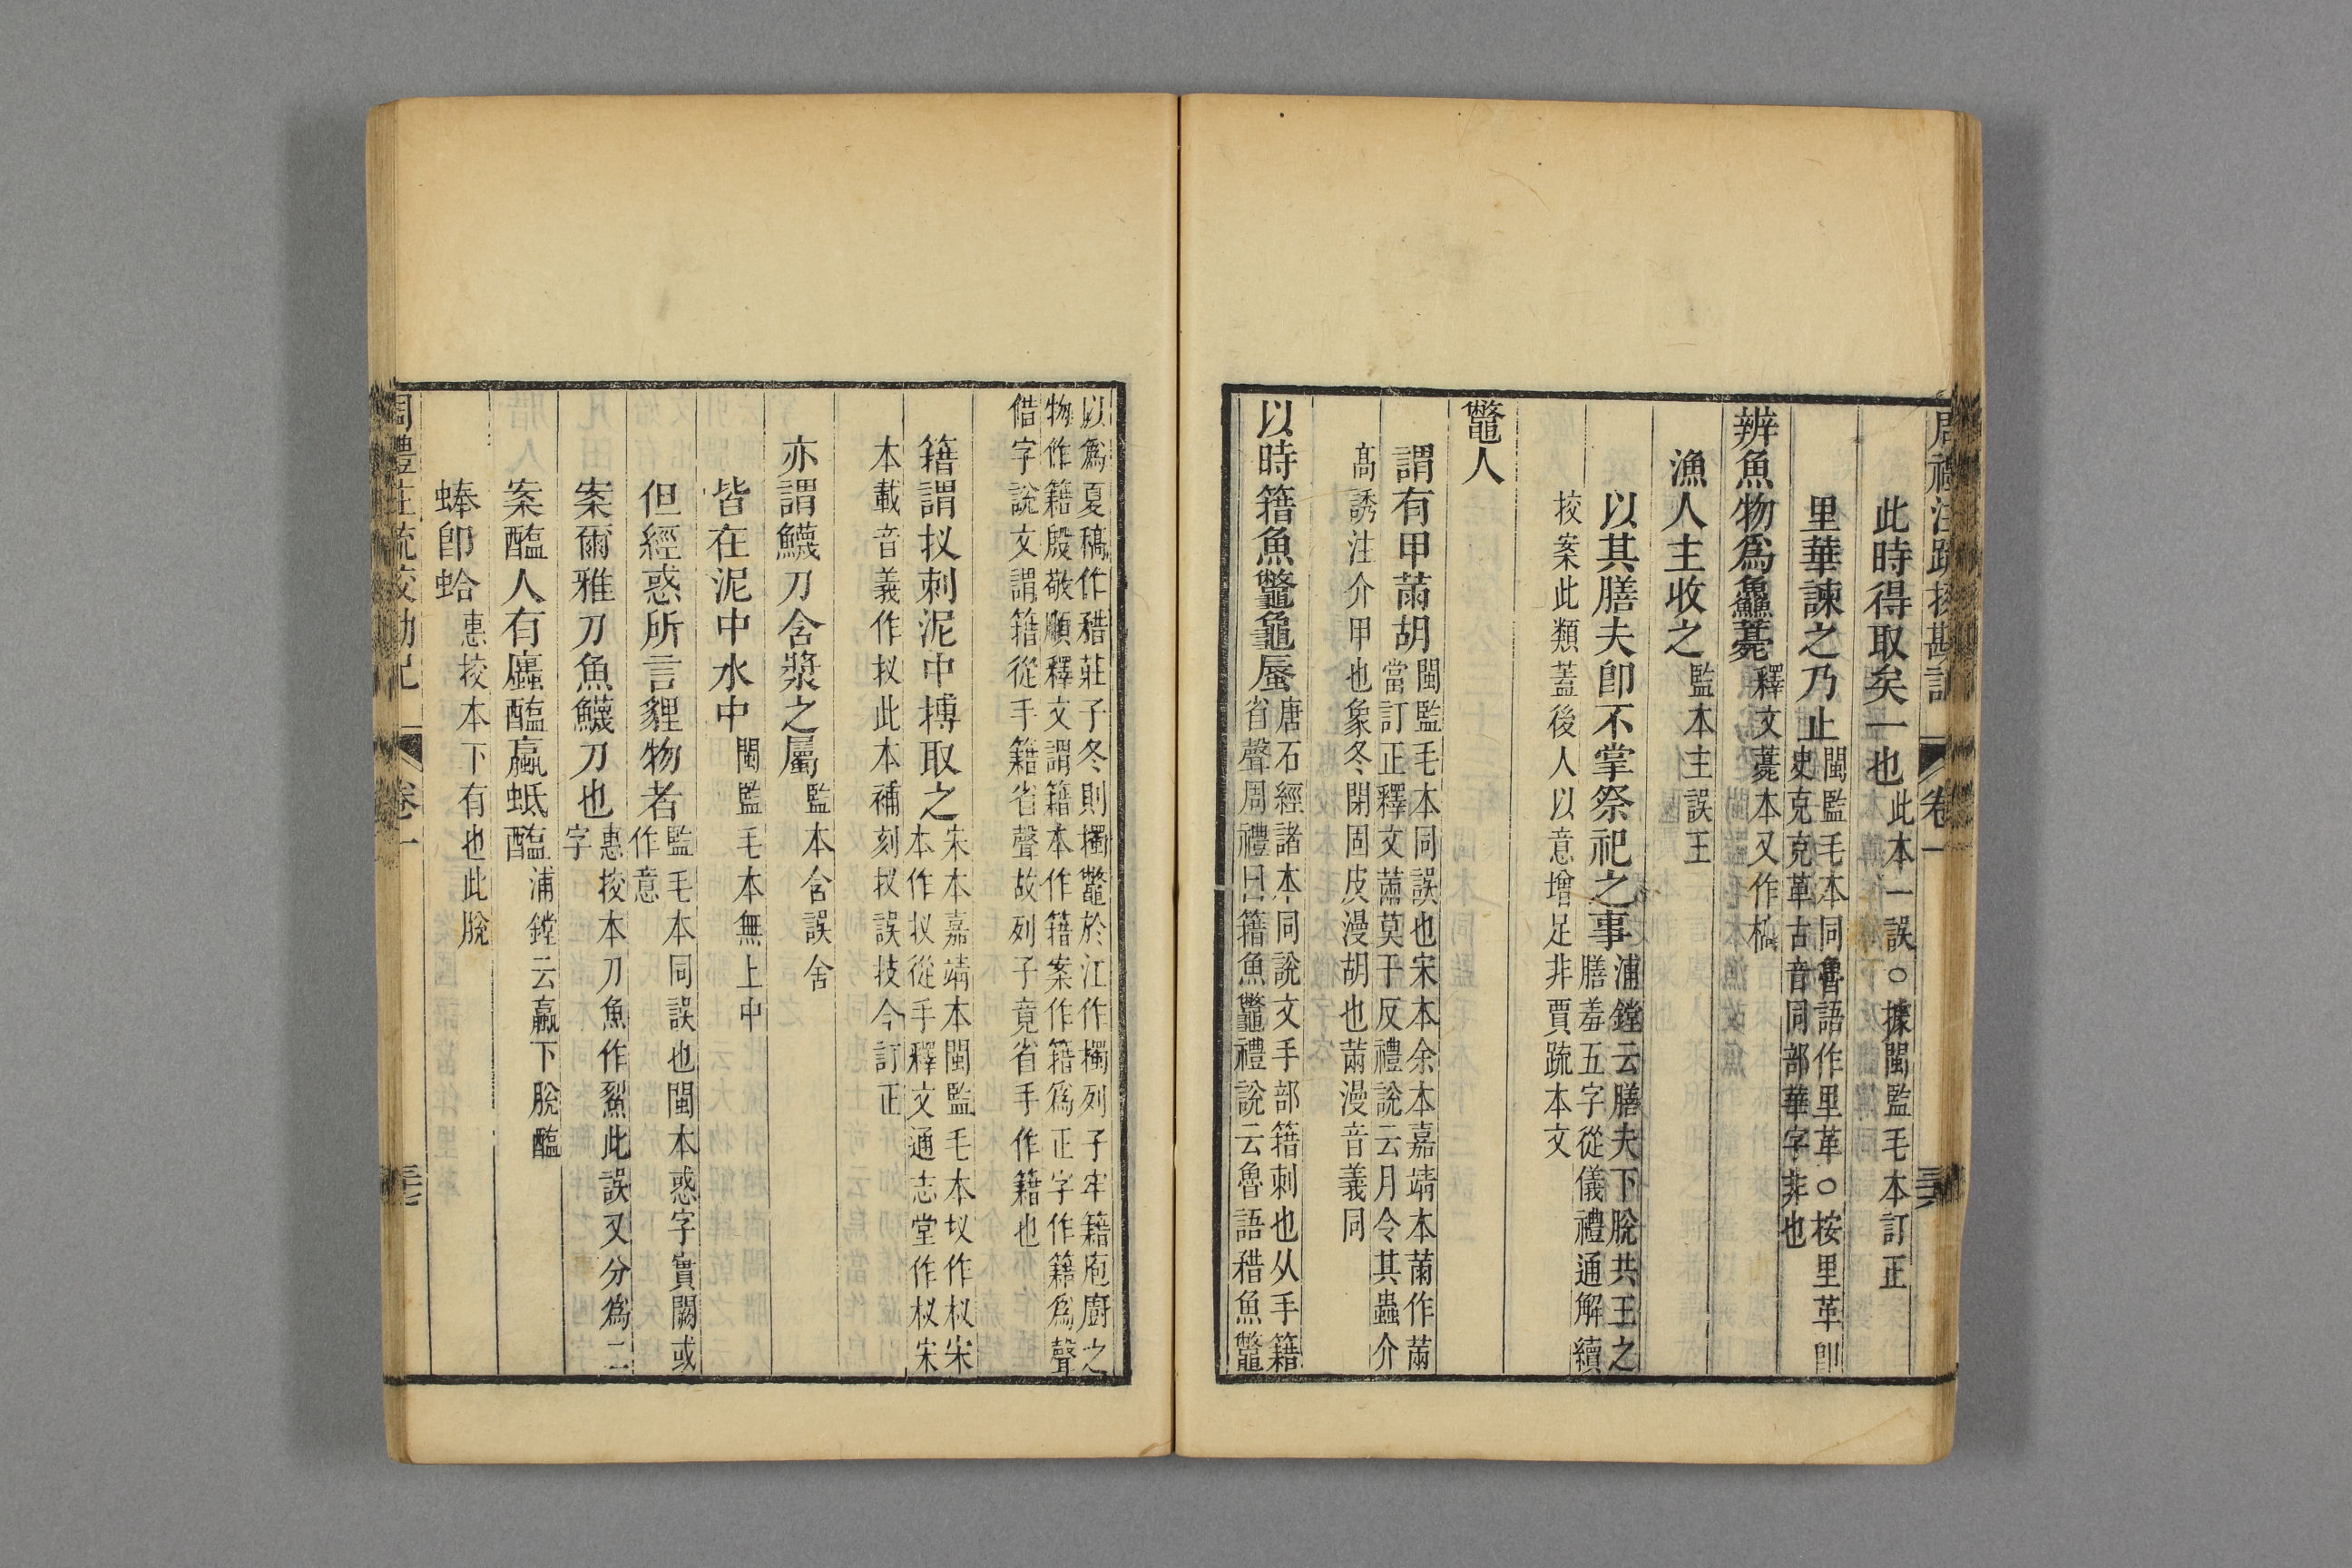 周禮注疏挍勘記 卷一
此時得取矣一也此本一誤○據閩監毛本訂正
里華諫之乃止閩監毛本同魯語作里革○桉里革卽
史克克革古音同部華字非也
辨魚物爲鱻薧釋文薧本又作槁
漁人主收之監本主誤王
以其膳夫卽不掌祭祀之事浦鏜云膳夫下脫共王之
膳羞五字從儀禮通解續
挍案此類蓋後人以意增足非賈疏本文
鼈人
謂有甲㒼胡閩監毛本同誤也宋本余本嘉靖本㒼作㒼
當訂正釋文㒼莫干反禮說云月令其蟲介
高誘注介甲也象冬閉固皮漫胡也㒼漫音義同
以時籍魚鼈龜蜃唐石經諸本同說文手部籍刺也从手籍
省聲周禮曰籍魚鼈禮說云魯語矠魚鼈
以爲夏犒作矠莊子冬則擉鼈於江作擉列子牢籍庖廚之
物作籍殷敬順釋文謂籍本作籍案作籍爲正字作籍爲聲
借字說文謂籍從手籍省聲故列子竟省手作籍也
籍謂扠刺泥中搏取之宋本嘉靖本閩監毛本扠作杈宋
本作扠從手釋文通志堂作杈宋
本載音義作扠此本補刻扠誤技今訂正
亦謂鱴刀含漿之屬監本含誤舍
皆在泥中水中閩監毛本無上中
但經惑所言貍物者監毛本同誤也閩本惑字實闕或
作意
案爾雅刀魚鱴刀也惠挍本刀魚作鮤此誤又分爲二
字
案醢人有蠯醢蠃蚳醢浦鏜云蠃下脫醢
蜯卽蛤惠挍本下有也此脫
周禮注疏挍勘記 卷一